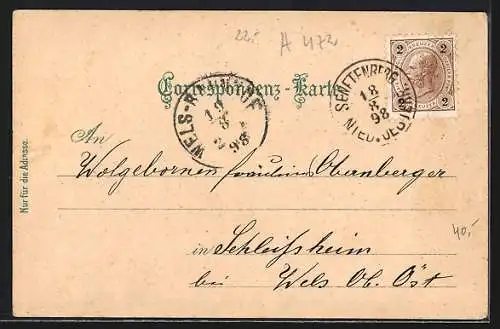 22.- A 472
Correspondenz-Karte
2 2
SENFTENBERG
18
8
98
NIED.OEST
WELS-BAHNHOF
19
8
98
An
Wolgebornen Fräulein Obernberger
in Schleißheim
bei Wels Ob. Öst
40,-
Nur für die Adresse.